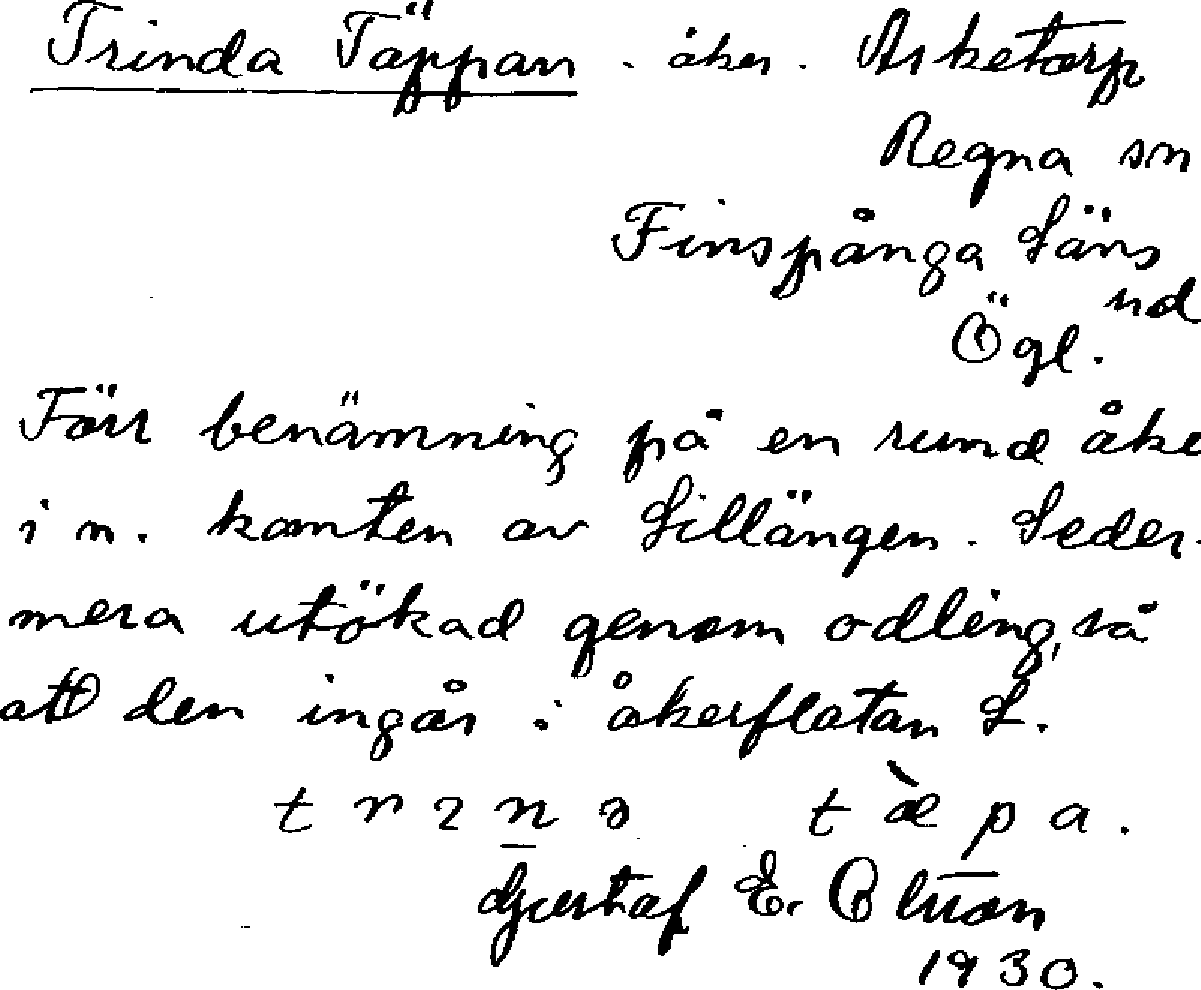 Trinda Täppan. åker. Asketorp
Regna sn
Finspånga Läns
nd
Ögl.
Förr benämning på en rund åke
i n. kanten av Lillängen. Seder-
mera utökad genom odling, så
att den ingår i åkerflatan L.
t r ɩ n̲ ə t æ̀ p̄ a.
Gustaf E.
1930.